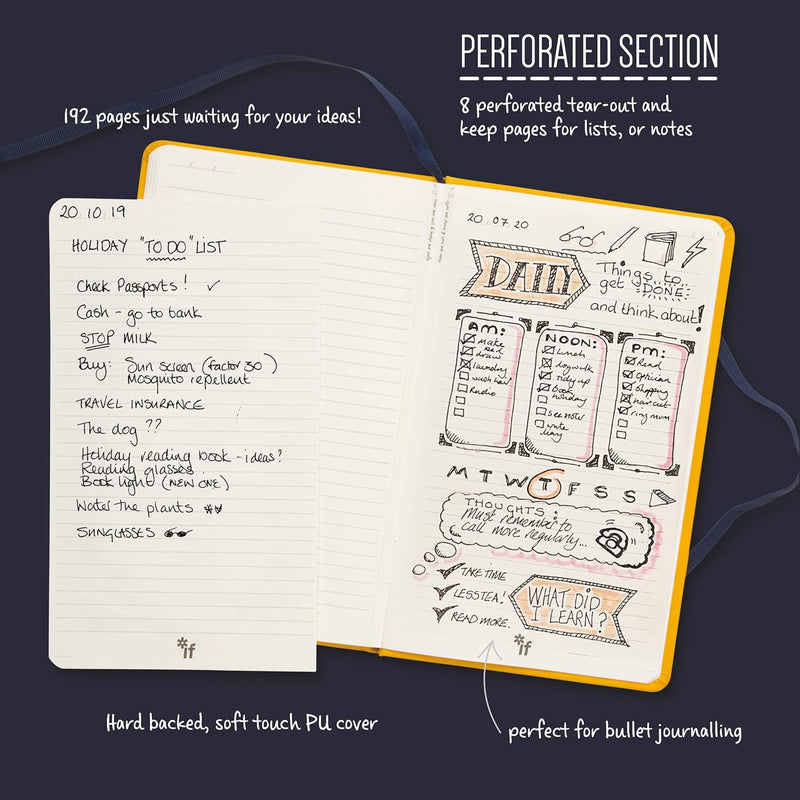 PERFORATED SECTION
8 perforated tear-out and
keep pages for lists, or notes
192 pages just waiting for your ideas!
20 10 19
HOLIDAY "TO DO" LIST
Check Passports! ✓
Cash - go to bank
STOP MILK
Buy: Sun screen (factor 30)
Mosquito repellent
TRAVEL INSURANCE
The dog ??
Holiday reading book - ideas?
Reading glasses.
Book light (NEW ONE)
Water the plants
SUNGLASSES
*if
20 07 20
DAILY
Things to
get DONE
and think about!
AM:
make
bed
draw
laundry
wash hair
Radio
NOON:
Lunch
dog walk
Tidy up
Book
holiday
see note
write
diary
PM:
Read
Optician
Shopping
haircut
ring mum
M T W T F S S
THOUGHTS:
Must remember to
call more regularly...
TAKE TIME
LESS TEA!
READ MORE.
WHAT DID
I LEARN?
*if
Hard backed, soft touch PU cover
perfect for bullet journalling